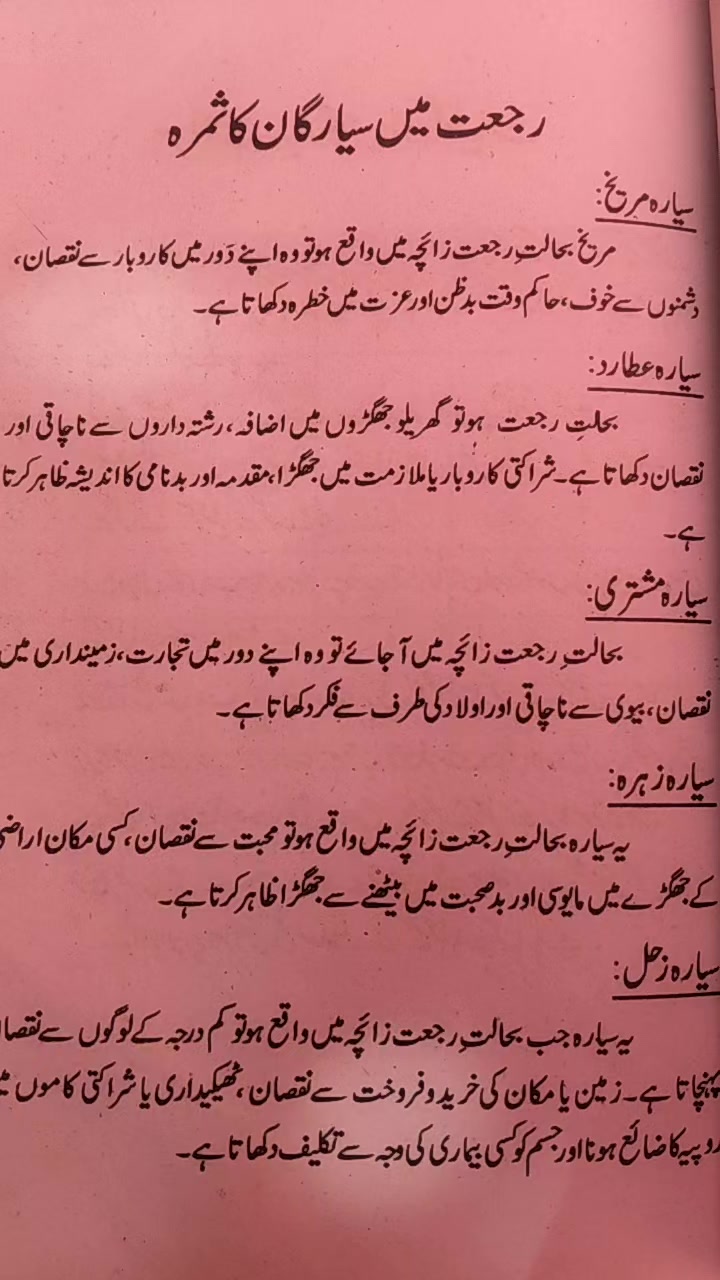 رجعت میں سیارگان کا ثمرہ
سیارہ مریخ:
مریخ بحالتِ رجعت زائچہ میں واقع ہو تو وہ اپنے دَور میں کاروبار سے نقصان،
دشمنوں سے خوف، حاکم وقت بدظن اور عزت میں خطرہ دکھاتا ہے۔
سیارہ عطارد:
بحلتِ رجعت ہو تو گھریلو جھگڑوں میں اضافہ، رشتہ داروں سے ناچاقی اور
نقصان دکھاتا ہے۔ شراکتی کاروبار یا ملازمت میں جھگڑا، مقدمہ اور بدنامی کا اندیشہ ظاہر کرتا
ہے۔
سیارہ مشتری:
بحالتِ رجعت زائچہ میں آ جائے تو وہ اپنے دور میں تجارت، زمینداری میں
نقصان، بیوی سے ناچاقی اور اولاد کی طرف سے فکر دکھاتا ہے۔
سیارہ زہرہ:
یہ سیارہ بحالتِ رجعت زائچہ میں واقع ہو تو محبت سے نقصان، کسی مکان اراضی
کے جھگڑے میں مایوسی اور بد صحبت میں بیٹھنے سے جھگڑا ظاہر کرتا ہے۔
سیارہ زحل:
یہ سیارہ جب بحالتِ رجعت زائچہ میں واقع ہو تو کم درجہ کے لوگوں سے نقصا
پہنچاتا ہے۔ زمین یا مکان کی خرید و فروخت سے نقصان، ٹھیکیداری یا شراکتی کاموں می
روپیہ کا ضائع ہونا اور جسم کو کسی بیماری کی وجہ سے تکلیف دکھاتا ہے۔